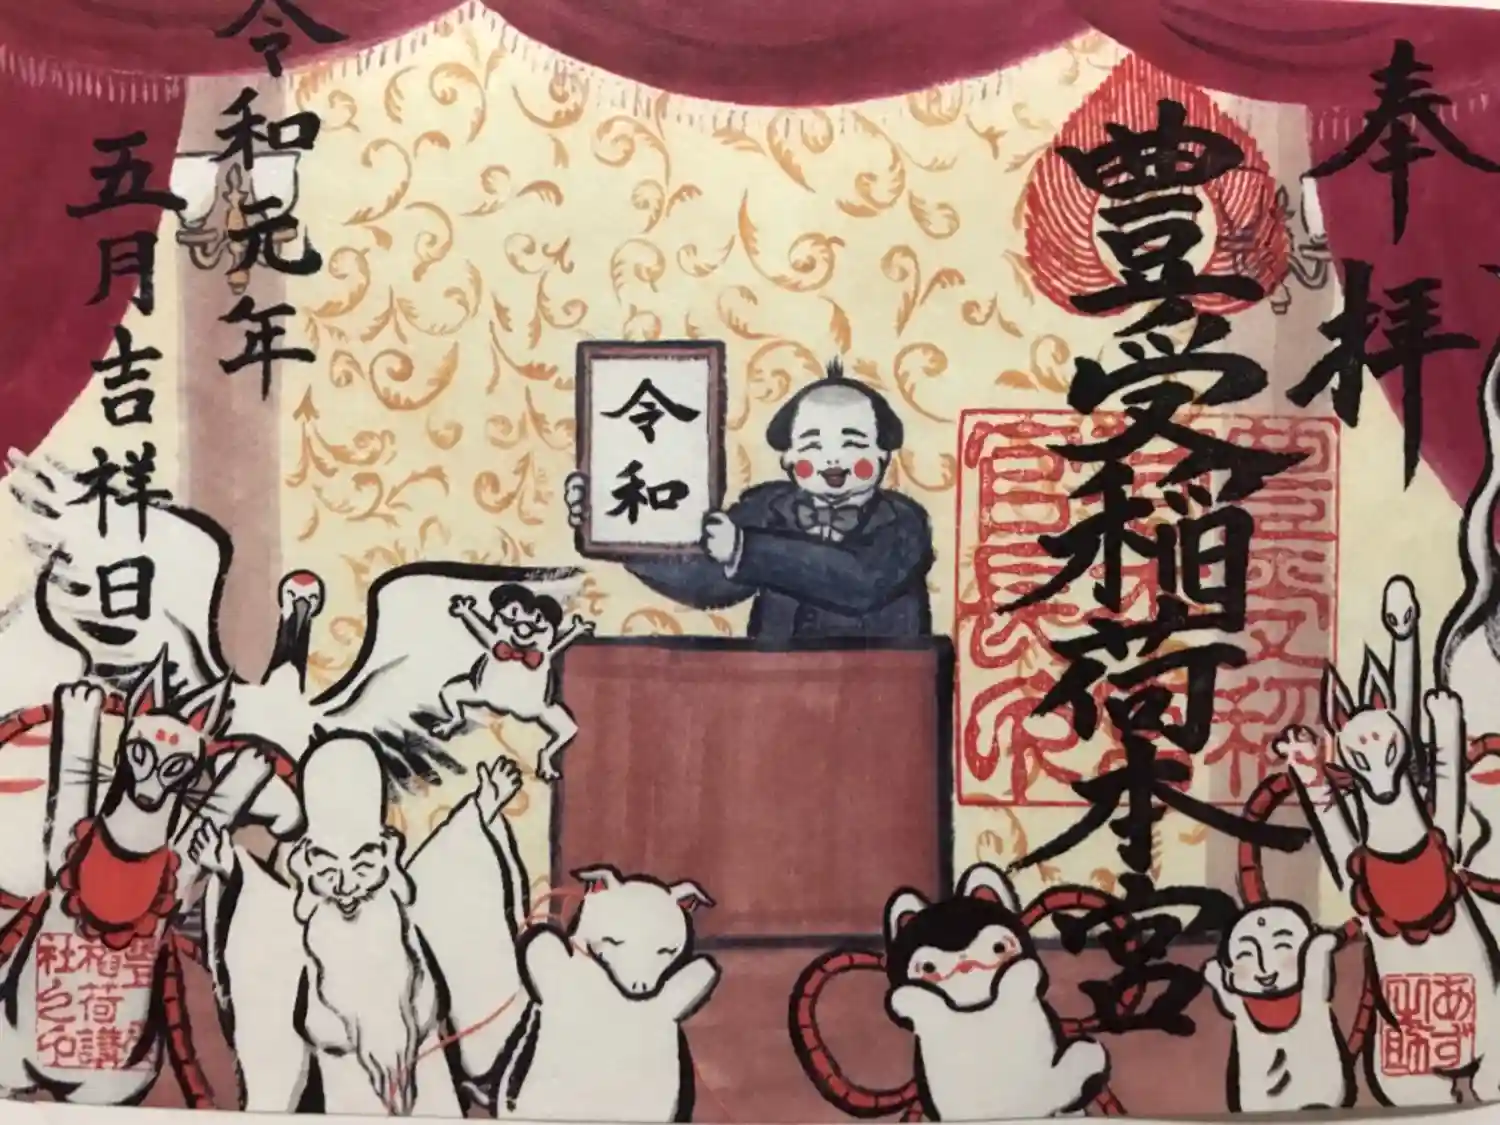 奉拝
豊受稲荷本宮
令和
令和元年
五月吉祥日
豊受稲荷講
社之印
あず